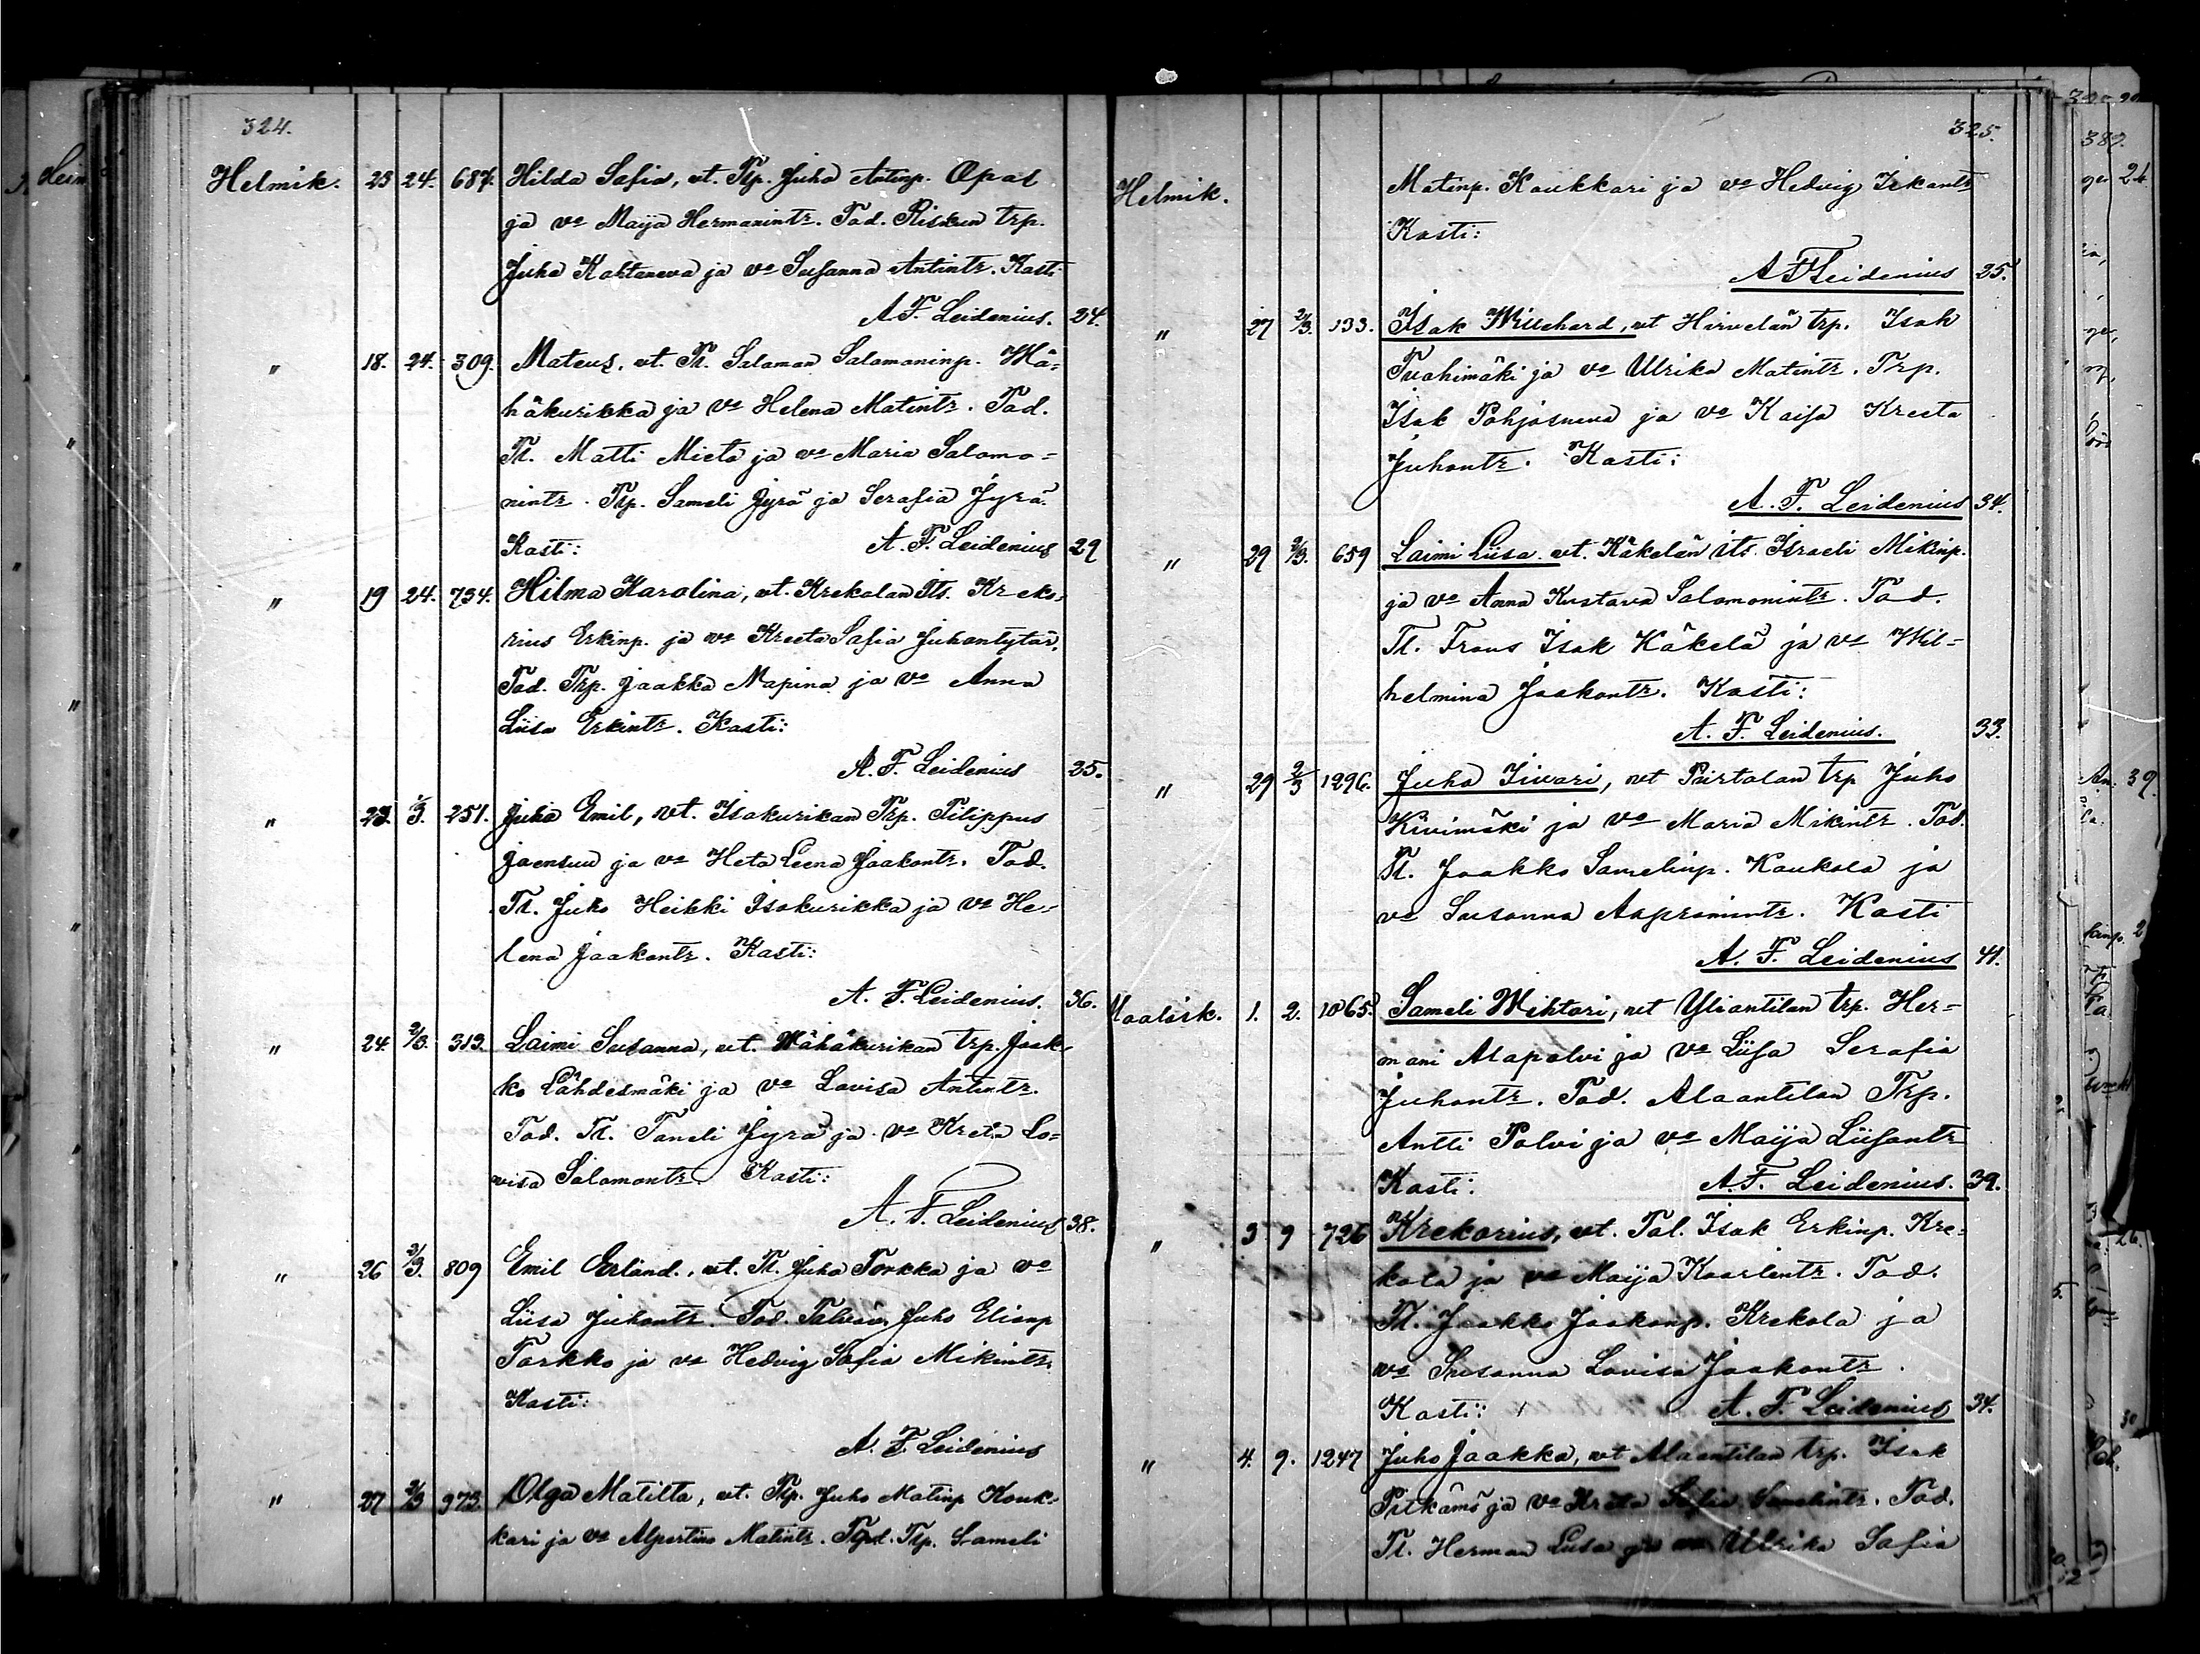 324.
Helmik. 23 24. 687. Hilda Sofia, vt. Trp. Juho Antinp. Opas
ja vo Maija Hermanintr. Tod. Riskun trp.
Juha Kahtaneva ja vo Susanna Antintr. Kasti
A. F. Leidenius. 24.
" 18. 24. 309. Mateus, vt. Tl. Salomon Salomoninp. Wä-
häkurikka ja vo Helena Matintr. Tod.
Tl. Matti Mieto ja vo Maria Salomo-
nintr. Trp. Sameli Jyrä ja Serafia Jyrä.
Kasti: A. F. Leidenius 29
" 19 24. 734. Hilma Karolina, vt. Krekolan Its. Kreko-
rius Erkinp. ja vo Kreeta Sofia Juhontytär,
Tod. Trp. Jaakko Napina ja vo Anna
Liisa Erkintr. Kasti:
A. F. Leidenius 25.
" 23. 1/3. 251. Juha Emil, vt. Isokurikan Trp. Pilippus
Joensuu ja vo Heta Leena Jaakontr. Tod.
Tl. Juho Heikki Isokurikka ja vo He-
lena Jaakontr. Kasti:
A. F. Leidenius. 36.
" 24. 2/3. 313. Laimi Susanna, vt. Wähäkurikan trp. Jaak-
ko Lähdesmäki ja vo Lovisa Antintr.
Tod. Tl. Taneli Jyrä ja vo Kreta Lo-
visa Salomontr. Kasti:
A. F. Leidenius 38.
" 26 2/3. 809 Emil Erland, vt. Tl. Juho Torkko ja vo
Liisa Juhontr. Tod. Juho Elianp
Torkko ja vo Hedvig Sofia Mikintr.
Kasti:
A. F. Leidenius
" 27 2/3 973. Olga Matilta, vt. Trp. Juho Matinp Kouk-
kari ja vo Alpertina Matintr. Tod. Trp. Sameli
325.
Helmik. Matinp. Koukkari ja vo Hedvig Iskantr
Kasti:
A F Leidenius 25.
" 27 2/3. 133. Isak Willehard, vt Hirvelän trp. Isak
Tuohimäki ja vo Ulrika Matintr. Trp.
Isak Pohjosneva ja vo Kaisa Kreeta
Juhontr. Kasti:
A. F. Leidenius 34.
" 29 2/3. 659 Laimi Liisa vt. Käkelän its. Israeli Mikinp.
ja vo Anna Kustava Salomonintr. Tod.
Tl. Frans Isak Käkelä ja vo Wil-
helmina Jaakontr. Kasti:
A. F. Leidenius. 33.
" 29 2/3 1296. Juho Iivari, vt Piirtolan trp Juho
Kivimäki ja vo Maria Mikintr. Tod.
Tl. Jaakko Samelinp. Koukola ja
vo Susanna Aapramintr. Kasti
A. F. Leidenius 41.
Maalisk. 1. 2. 1065. Sameli Wihtori, vt Yliantilan trp. Her-
mani Alapolvi ja vo Liisa Serafia
Juhontr. Tod. Alaantilan Trp.
Antti Polvi ja vo Maija Liisantr
Kasti: A. F. Leidenius. 39.
" 3 9 726 Krekorius, vt. Tal. Isak Erkinp. Kre-
kola ja vo Maija Kaarlentr. Tod.
Tl. Jaakko Jaakonp. Krekola ja
vo Susanna Lovisa Jaakontr.
Kasti: A. F. Leidenius 34.
" 4. 9. 1247 Juho Jaakko, vt Alaantilan trp. Isak
Pitkämö ja vo Kreta Sofia Samelintr. Tod.
Tl. Herman Luoa ja vo Ulrika Sofia